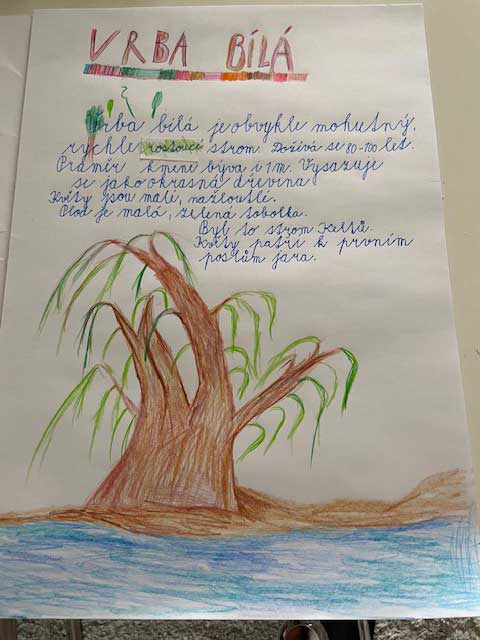 VRBA BÍLÁ
Vrba bílá je obvykle mohutný,
rychle rostoucí strom. Dožívá se 80-100 let.
Průměr kmene bývá i 1m. Vysazuje
se jako okrasná dřevina.
Květy jsou malé, nažloutlé.
Plod je malá, zelená tobolka.
Byl to strom Keltů.
Květy patří k prvním
poslům jara.